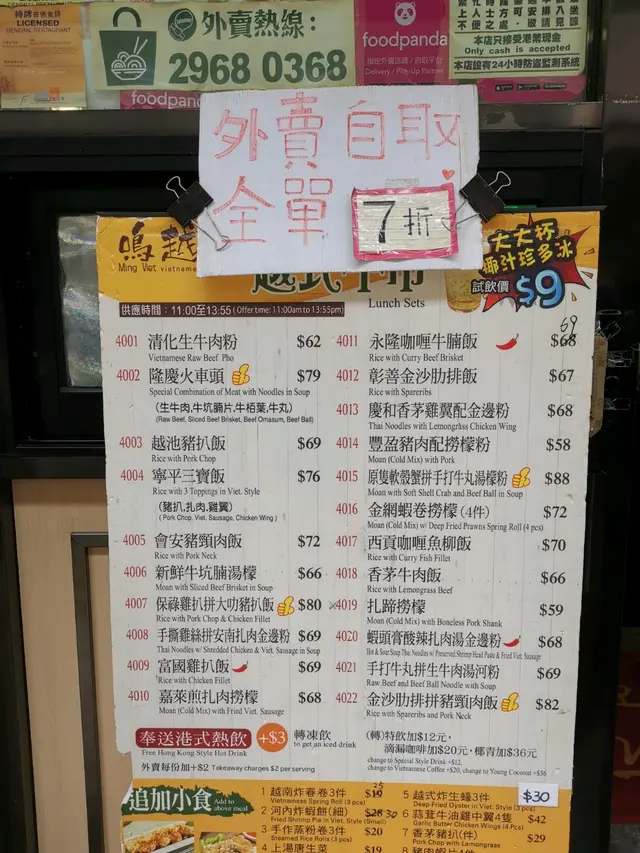 持牌普通食肆
LICENSED
GENERAL RESTAURANT
外賣熱線：
2968 0368
foodpanda
Delivery / Pick-Up Partner
本店只接受港幣現金
Only cash is accepted
本店設有24小時防盜監測系統
外賣自取
全單 7折
鳴越
Ming Viet vietnamese
Lunch Sets
大大杯
椰汁珍多冰
試飲價 $9
供應時間：11:00至13:55 (Offer time: 11:00am to 13:55pm)
4001 清化生牛肉粉 $62
Vietnamese Raw Beef Pho
4002 隆慶火車頭 $79
Special Combination of Meat with Noodles in Soup
(生牛肉,牛坑腩片,牛栢葉,牛丸)
(Raw Beef, Sliced Beef Brisket, Beef Omasum, Beef Ball)
4003 越池豬扒飯 $69
Rice with Pork Chop
4004 寧平三寶飯 $76
Rice with 3 Toppings in Viet. Style
(豬扒,扎肉,雞翼)
(Pork Chop, Viet. Sausage, Chicken Wing)
4005 會安豬頸肉飯 $72
Rice with Pork Neck
4006 新鮮牛坑腩湯檬 $66
Moan with Sliced Beef Brisket in Soup
4007 保祿雞扒拼大叻豬扒飯 $80
Rice with Pork Chop & Chicken Fillet
4008 手撕雞絲拼安南扎肉金邊粉 $69
Thai Noodles w/ Shredded Chicken & Viet. Sausage in Soup
4009 富國雞扒飯 $69
Rice with Chicken Fillet
4010 嘉萊煎扎肉撈檬 $68
Moan (Cold Mix) with Fried Viet. Sausage
4011 永隆咖喱牛腩飯 $68 69
Rice with Curry Beef Brisket
4012 彰善金沙肋排飯 $67
Rice with Spareribs
4013 慶和香茅雞翼配金邊粉 $68
Thai Noodles with Lemongrass Chicken Wing
4014 豐盈豬肉配撈檬粉 $58
Moan (Cold Mix) with Pork
4015 原隻軟殼蟹拼手打牛丸湯檬粉 $88
Moan with Soft Shell Crab and Beef Ball in Soup
4016 金網蝦卷撈檬 (4件) $72
Moan (Cold Mix) w/ Deep Fried Prawns Spring Roll (4 pcs)
4017 西貢咖喱魚柳飯 $70
Rice with Curry Fish Fillet
4018 香茅牛肉飯 $66
Rice with Lemongrass Beef
4019 扎蹄撈檬 $59
Moan (Cold Mix) with Boneless Pork Shank
4020 蝦頭膏酸辣扎肉湯金邊粉 $68
Hot & Sour Soup Thai Noodles w/ Preserved Shrimp Head Paste & Fried Viet. Sausage
4021 手打牛丸拼生牛肉湯河粉 $69
Raw Beef and Beef Ball Noodle with Soup
4022 金沙肋排拼豬頸肉飯 $82
Rice with Spareribs and Pork Neck
奉送港式熱飲 +$3 轉凍飲
Free Hong Kong Style Hot Drink to get an iced drink
外賣每份加+$2 Takeaway charges $2 per serving
(轉)特飲加$12元,
滴漏咖啡加$20元，椰青加$36元
change to Special Style Drink +$12,
change to Vietnamese Coffee +$20, change to Young Coconut +$36
追加小食 Add to above meal
1 越南炸春卷3件
Vietnamese Spring Roll (3 pcs)
2 河內炸蝦餅(細) $28 30
Fried Shrimp Pia in Viet. Style (Small)
3 手作蒸粉卷3件 $20
Steamed Rice Rolls (3 pcs)
4 上湯唐生菜 $19
5 越式炸生蠔3件 $30
Deep Fried Oyster in Viet. Style (3 pcs)
6 蒜茸牛油雞中翼4隻 $42
Garlic Butter Chicken Wings (4 Pcs)
7 香茅豬扒(件) $29
Pork Chop with Lemongrass